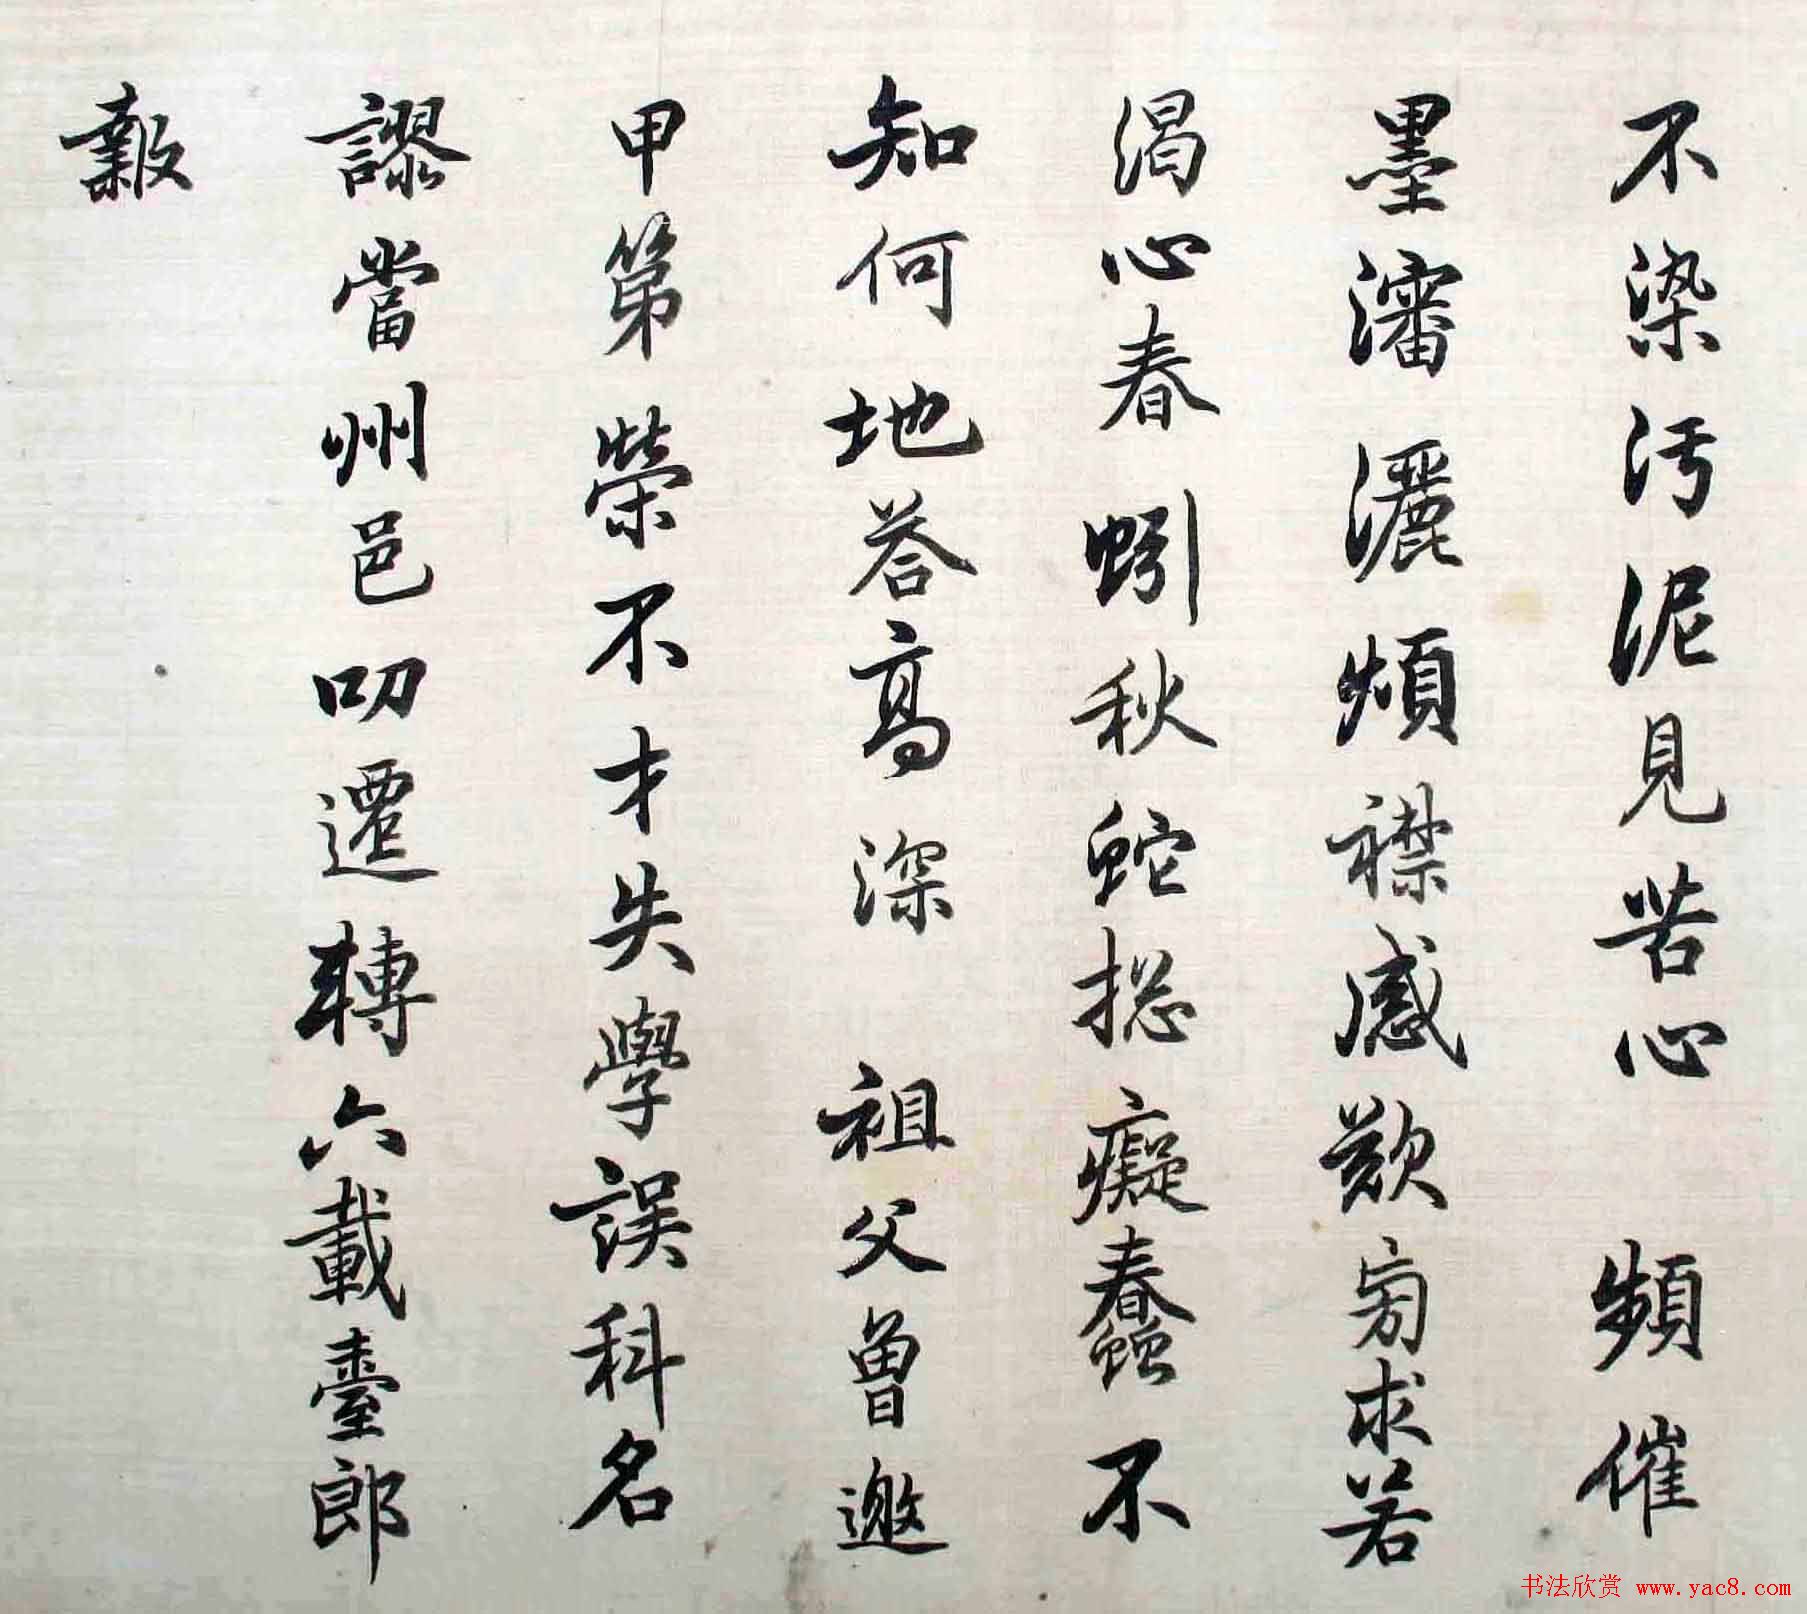 不染污泥見苦心 頻催
墨瀋灑煩襟感歎旁求若
渴心春蚓秋蛇捴癡蠢不
知何地答高深 祖父曾邀
甲第榮不才失學誤科名
謬當州邑叨遷轉六載臺郎
報
书法欣赏 www.yac8.com